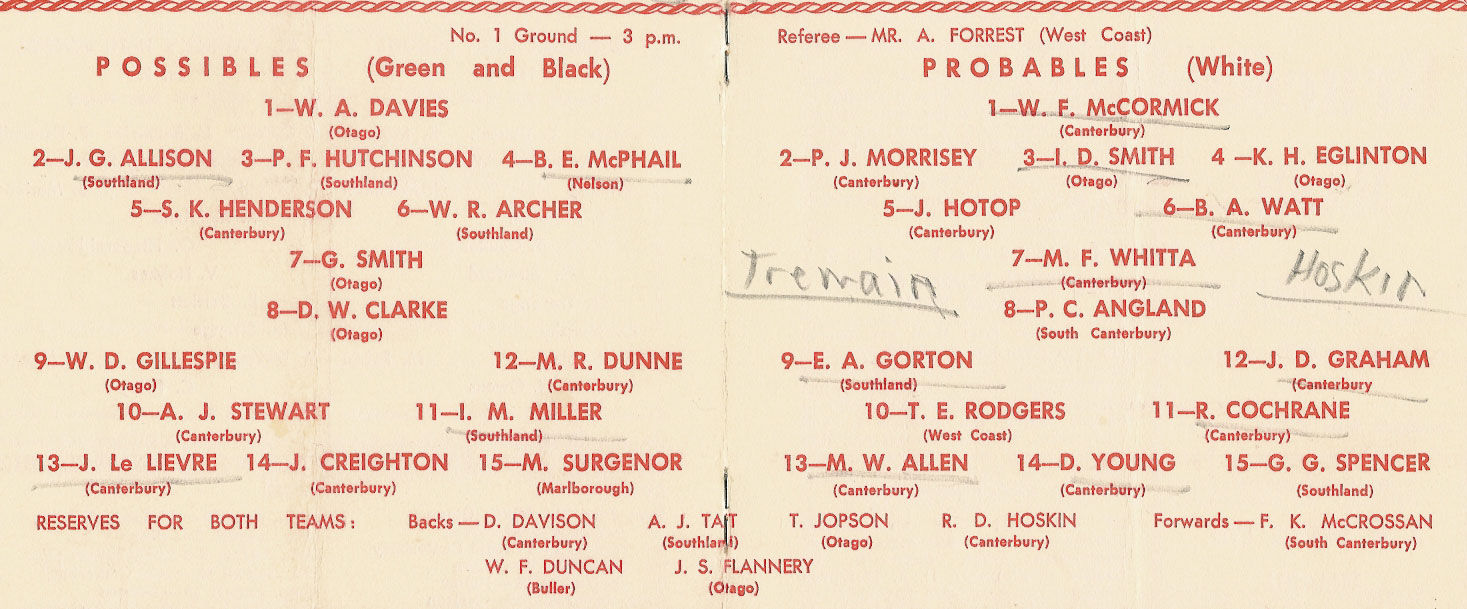 No. 1 Ground — 3 p.m.
POSSIBLES (Green and Black)
1—W. A. DAVIES
(Otago)
2—J. G. ALLISON 3—P. F. HUTCHINSON 4—B. E. McPHAIL
(Southland) (Southland) (Nelson)
5—S. K. HENDERSON 6—W. R. ARCHER
(Canterbury) (Southland)
7—G. SMITH
(Otago)
8—D. W. CLARKE
(Otago)
9—W. D. GILLESPIE 12—M. R. DUNNE
(Otago) (Canterbury)
10—A. J. STEWART 11—I. M. MILLER
(Canterbury) (Southland)
13—J. Le LIEVRE 14—J. CREIGHTON 15—M. SURGENOR
(Canterbury) (Canterbury) (Marlborough)
Referee — MR. A. FORREST (West Coast)
PROBABLES (White)
1—W. F. McCORMICK
(Canterbury)
2—P. J. MORRISEY 3—I. D. SMITH 4 —K. H. EGLINTON
(Canterbury) (Otago) (Otago)
5—J. HOTOP 6—B. A. WATT
(Canterbury) (Canterbury)
Tremain 7—M. F. WHITTA Hoskin
(Canterbury)
8—P. C. ANGLAND
(South Canterbury)
9—E. A. GORTON 12—J. D. GRAHAM
(Southland) (Canterbury
10—T. E. RODGERS 11—R. COCHRANE
(West Coast) (Canterbury)
13—M. W. ALLEN 14—D. YOUNG 15—G. G. SPENCER
(Canterbury) (Canterbury) (Southland)
RESERVES FOR BOTH TEAMS: Backs — D. DAVISON A. J. TAIT T. JOPSON R. D. HOSKIN Forwards — F. K. McCROSSAN
(Canterbury) (Southland) (Otago) (Canterbury) (South Canterbury)
W. F. DUNCAN J. S. FLANNERY
(Buller) (Otago)